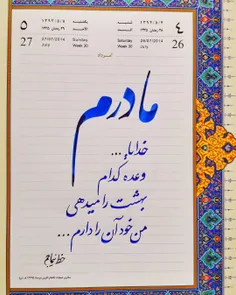 ۵
۱۳۹۳/۵/۵
یکشنبه
27
27/07/2014
July
Sunday
Week 30
۴
۱۳۹۳/۵/۴
شنبه
26
26/07/2014
July
Saturday
Week 30
مادرم
خدایا...
وعده کدام
بهشت را میدهی
من خود آن را دارم...